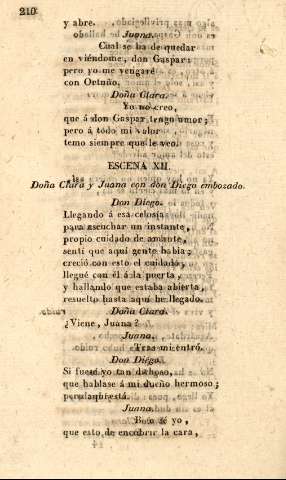 210
y abre.
Juana.
Cual se ha de quedar
en viéndome, don Gaspar:
pero yo me vengaré
con Ortuño.
Doña Clara.
Yo no creo,
que á don Gaspar tengo amor;
pero á todo mi valor
temo siempre que le veo.
ESCENA XII.
Doña Clara y Juana con don Diego embozado.
Don Diego.
Llegando á esa celosía
para escuchar un instante,
propio cuidado de amante,
sentí que aquí gente habia;
creció con esto el cuidado,
llegué con él á la puerta,
y hallando que estaba abierta,
resuelto hasta aquí he llegado.
Doña Clara.
¿Viene, Juana?
Juana.
Tras mí entró.
Don Diego.
Si fuese yo tan dichoso,
que hablase á mi dueño hermoso;
pero aquí está.
Juana.
sé yo,
que esto de encubrir la cara,